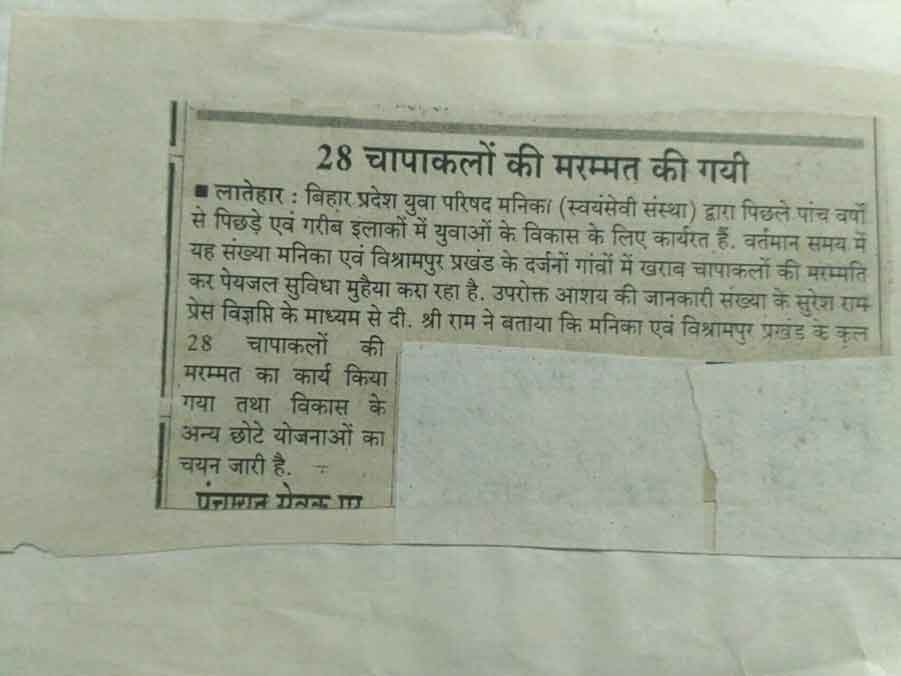 28 चापाकलों की मरम्मत की गयी
■ लातेहार : बिहार प्रदेश युवा परिषद मनिका (स्वयंसेवी संस्था) द्वारा पिछले पांच वर्षों
से पिछड़े एवं गरीब इलाकों में युवाओं के विकास के लिए कार्यरत हैं. वर्तमान समय में
यह संख्या मनिका एवं विश्रामपुर प्रखंड के दर्जनों गांवों में खराब चापाकलों की मरम्मति
कर पेयजल सुविधा मुहैया करा रहा है. उपरोक्त आशय की जानकारी संख्या के सुरेश राम
प्रेस विज्ञप्ति के माध्यम से दी. श्री राम ने बताया कि मनिका एवं विश्रामपुर प्रखंड के कुल
28 चापाकलों की
मरम्मत का कार्य किया
गया तथा विकास के
अन्य छोटे योजनाओं का
चयन जारी है.